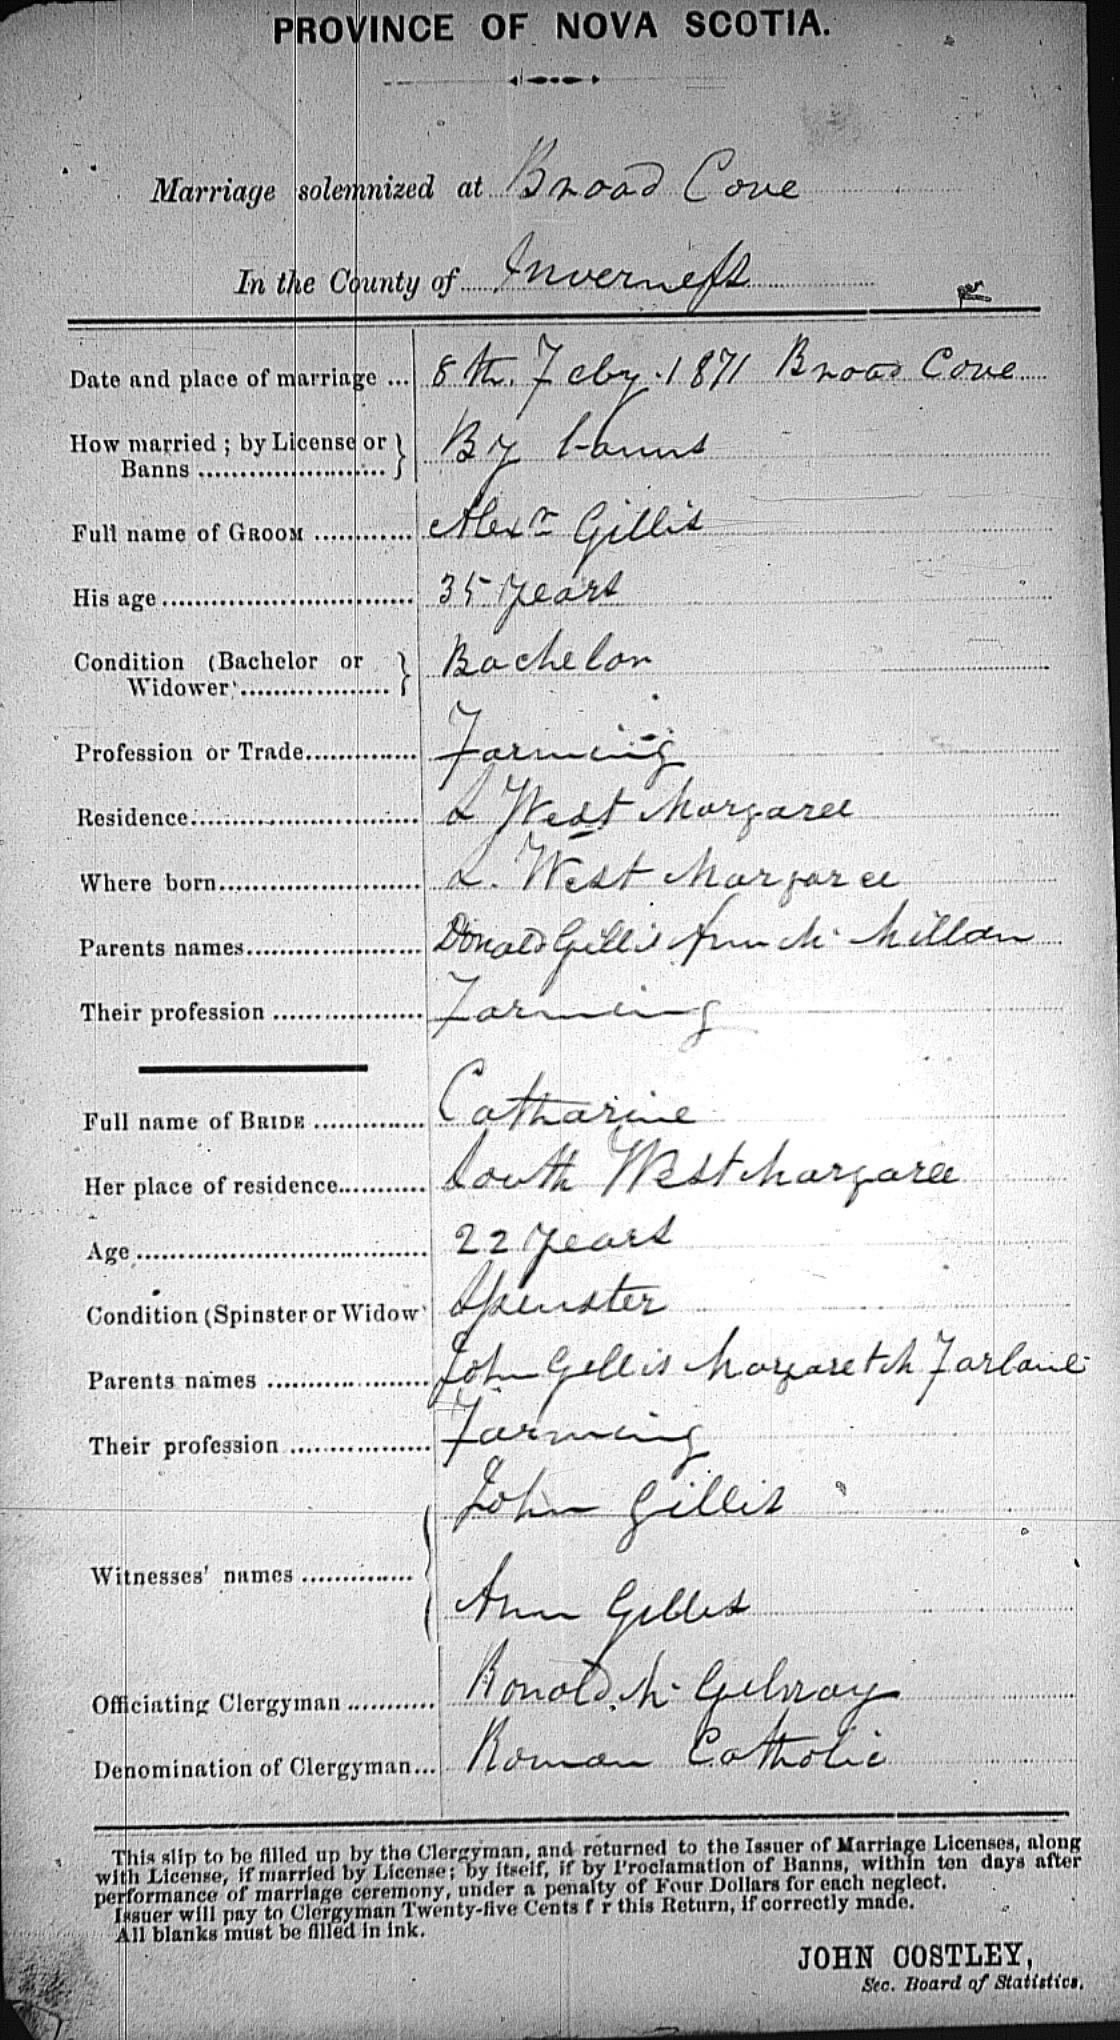 PROVINCE OF NOVA SCOTIA.
Marriage solemnized at Broad Cove
In the County of Inverness
Date and place of marriage ... 8th. Feby. 1871 Broad Cove
How married; by License or Banns } By banns
Full name of GROOM Alexr Gillis
His age 35 years
Condition (Bachelor or Widower } Bachelor
Profession or Trade Farming
Residence S West Margaree
Where born S. West Margaree
Parents names Donald Gillis Ann Mc Millan
Their profession Farming
Full name of BRIDE Catharine
Her place of residence South West Margaree
Age 22 years
Condition (Spinster or Widow Spinster
Parents names John Gillis Margaret Mc Farlane
Their profession Farming
John Gillis
Witnesses' names
Ann Gillis
Officiating Clergyman Ronald Mc Gilvray
Denomination of Clergyman... Roman Catholic
This slip to be filled up by the Clergyman, and returned to the Issuer of Marriage Licenses, along
with License, if married by License; by itself, if by Proclamation of Banns, within ten days after
performance of marriage ceremony, under a penalty of Four Dollars for each neglect.
Issuer will pay to Clergyman Twenty-five Cents f r this Return, if correctly made.
All blanks must be filled in ink.
JOHN COSTLEY,
Sec. Board of Statistics.